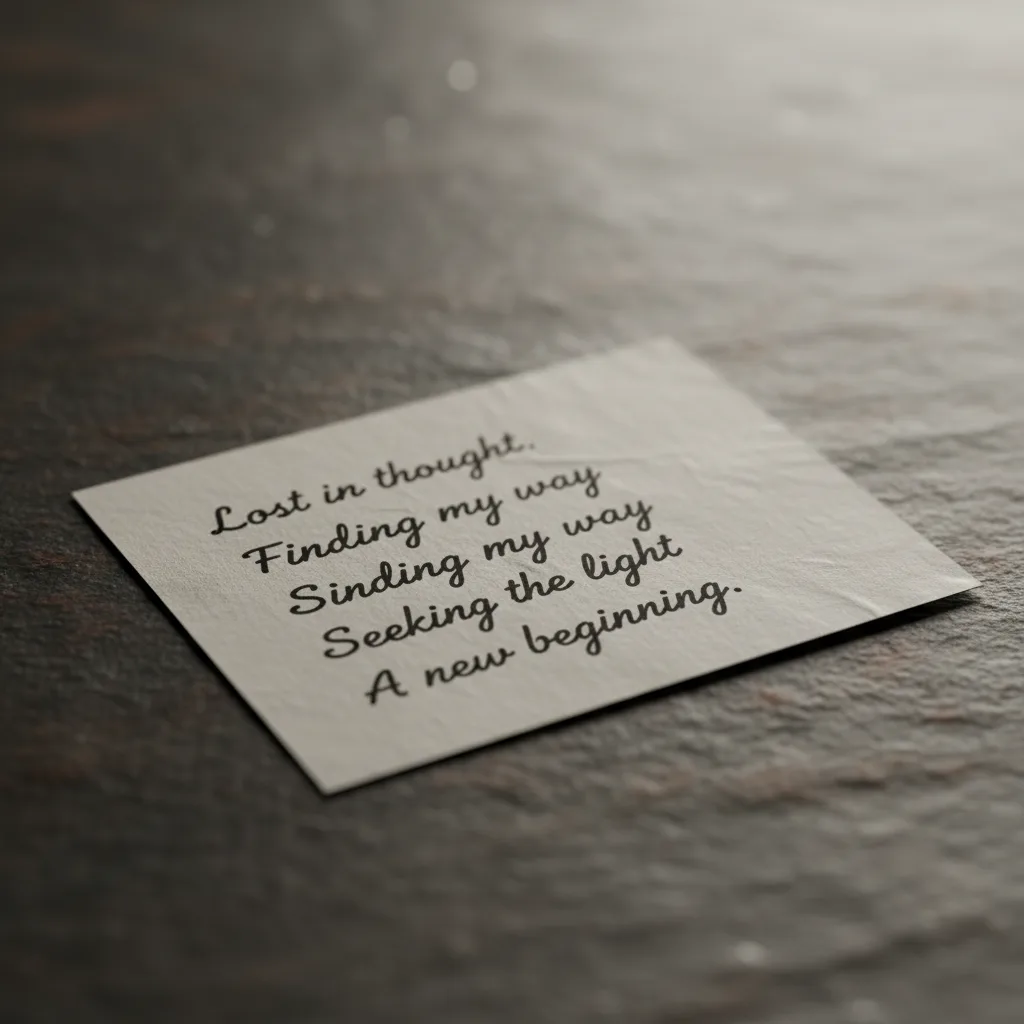 Lost in thought.
Finding my way
Sinding my way
Seeking the light
A new beginning.